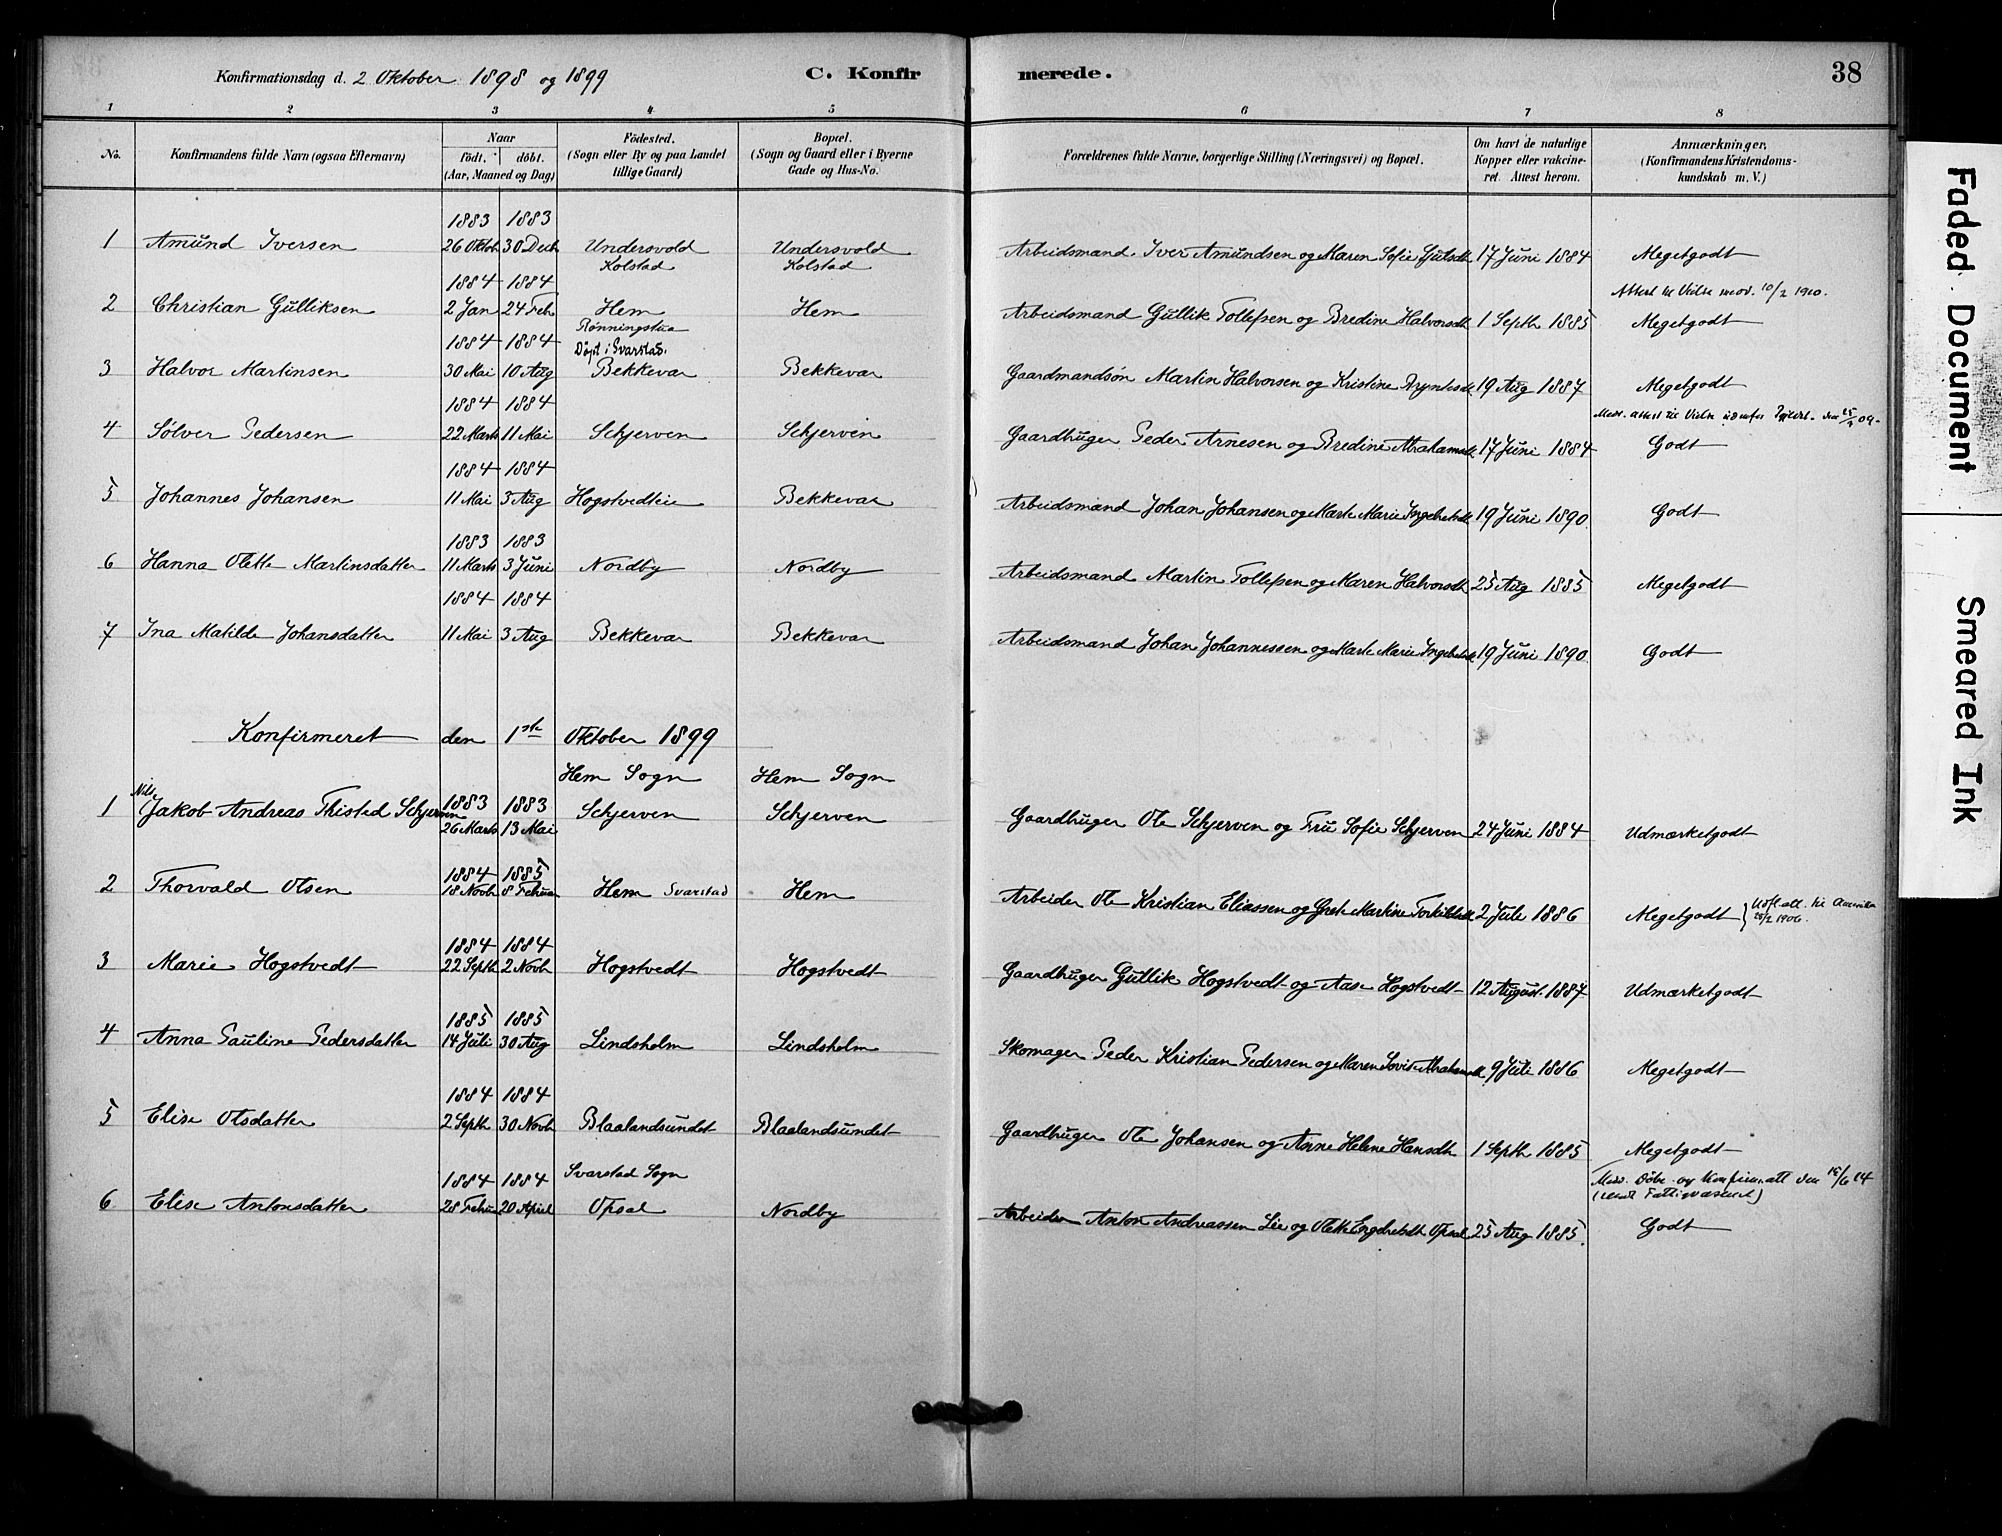 Konfirmationsdag d. 2 Oktober 1898 og 1899 C. Konfirmerede. 38
1 2 3 4 5 6 7 8
No. Konfirmandens fulde Navn (ogsaa Efternavn) Naar födt. döbt. (Aar, Maaned og Dag) Födested. (Sogn eller By og paa Landet tillige Gaard) Bopæl. (Sogn og Gaard eller i Byerne Gade og Hus-No. Forældrenes fulde Navne, borgerlige Stilling (Næringsvei) og Bopæl. Om havt de naturlige Kopper eller vakcineret. Attest herom. Anmærkninger. (Konfirmandens Kristendomskundskab m. V.)
1883 1883
1 Amund Iversen 26 Oktob 30 Decb Undersvold Undersvold Arbeidsmand Iver Amundsen og Maren Sofie 17 Juni 1884 Megetgodt
Kolstad Kolstad
1884 1884 Attest til Vielse medd. 10/2 1910.
2 Christian Gulliksen 2 Jan 24 Feb Hem Hem Arbeidsmand Gullik Tollefsen og Bredine Halvorsdt 1 Septb 1885 Megetgodt
Rønningstua
1884 1884 Døpt i Svarstad.
3 Halvor Martinsen 30 Mai 10 Aug Bekkevar Bekkevar Gaardmandsøn Martin Halvorsen og Kristine 19 Aug 1887 Megetgodt
1884 1884 Medd. attest til Vielse
4 Sølver Pedersen 22 Marts 11 Mai Schjerven Schjerven Gaardbruger Peder Arnesen og Bredine Abrahamsdt 17 Juni 1884 Godt
1884 1884
5 Johannes Johansen 11 Mai 3 Aug Hogstvedteie Bekkevar Arbeidsmand Johan Johansen og Marte Marie Ingebretsdt 19 Juni 1890 Godt
1883 1883
6 Hanna Olette Martinsdatter 11 Marts 3 Juni Nordby Nordby Arbeidsmand Martin Tollefsen og Maren Halvorsdt 25 Aug 1885 Megetgodt
1884 1884
7 Ina Matilde Johansdatter 11 Mai 3 Aug Bekkevar Bekkevar Arbeidsmand Johan Johannessen og Marte Marie Ingebretsdt 19 Juni 1890 Godt
Konfirmeret den 1ste Oktober 1899
Hem Sogn Hem Sogn
Nils
1 Jakob Andreas Thisted Schjerven 1883 1883 Schjerven Schjerven Gaardbruger Ole Schjerven og Fru Sofie Schjerven 24 Juni 1884 Udmærketgodt
26 Marts 13 Mai
1884 1885
2 Thorvald Olsen 18 Novb 8 Februar Hem Svarstad Hem Arbeider Ole Kristian Eliassen og Grete Martine Torkildsdt 2 Juli 1886 Megetgodt Udfl.att. til Amerika
28/2 1906.
1884 1884
3 Marie Hogstvedt 22 Septb 2 Novb Hogstvedt Hogstvedt Gaardbruger Gullik Hogstvedt og Aase Hogstvedt 12 August 1887 Udmærketgodt
1885 1885
4 Anna Pauline Pedersdatter 14 Juli 30 Aug Lindsholm Lindsholm Skomager Peder Kristian Pedersen og Maren Lovise Abrahamsdt 9 Juli 1886 Megetgodt
1884 1884
5 Elise Olsdatter 2 Septb 30 Novb Blaalandsundet Blaalandsundet Gaardbruger Ole Johansen og Anne Helene Hansdt 1 Septb 1885 Megetgodt
1884 1884 Svarstad Sogn Medd. Døbe- og Konfirm.att den 15/6 14
(sendt Fattigvæsenet)
6 Elise Antonsdatter 28 Februar 20 April Opsal Nordby Arbeider Anton Andreassen Lie og Olette Engebretsdt Opsal 25 Aug 1885. Godt
Faded Document
Smeared Ink